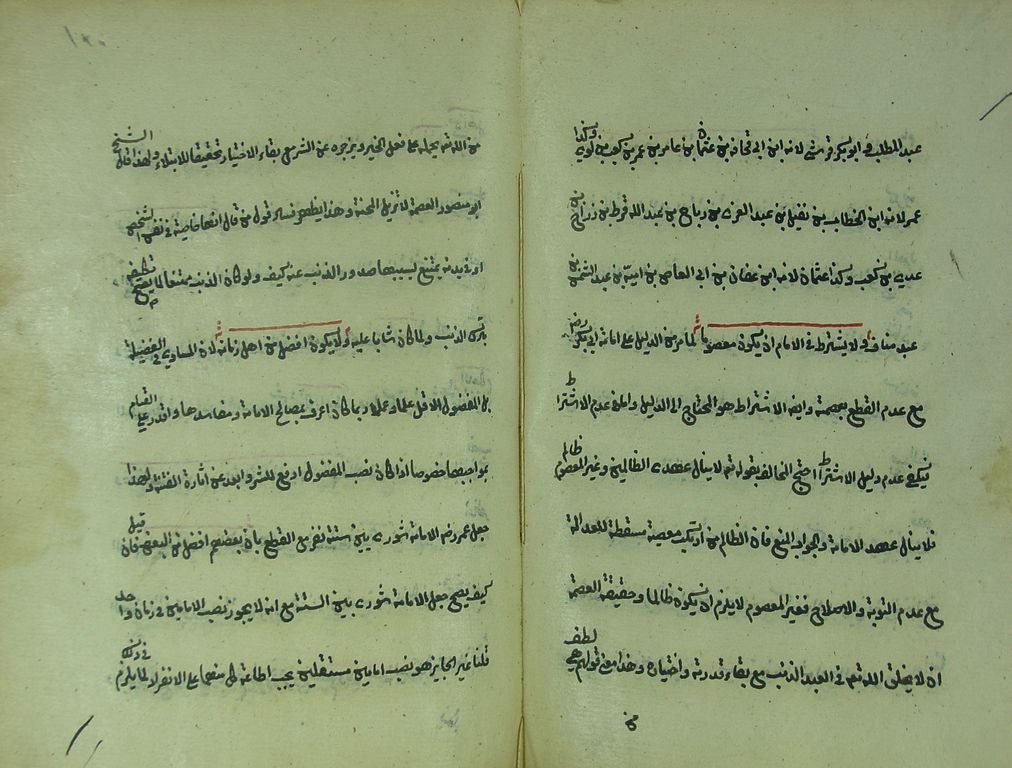 عبد المطلب وابو بكر قرشي لانه ابن ابي قحافة بن عثمان بن عامر بن عمر بن كعب بن لوي وكذا
عمر لانه ابن الخطاب بن نفيل بن عبد العزى بن رباح بن عبد الله قرط بن زراح بن
عدي بن كعب وكذا عثمان لانه ابن عفان بن ابي العاص بن امية بن عبد الشمس بن
عبد مناف ولا يشترط في الامام ان يكون معصوما لما مر من الدليل على امامة ابي بكر رضه
مع عدم القطع بعصمة وايضا الاشتراط هو المحتاج الى الدليل واما في عدم الاشتراط
فيكفي عدم دليل الاشتراط احتج المخالف بقوله تع لا ينال عهدي الظالمين وغير المعصوم ظالم
فلا ينال عهد الامامة والجواب المنع فان الظالم من ارتكب معصية مسقطة للعدالة
مع عدم التوبة والاصلاح فغير المعصوم لا يلزم ان يكون ظالما وحقيقة العصمة
ان لا يخلق الله تعم في العبد الذنب مع بقاء قدرته واختياره وهذا معنى قولهم هي لطف
من
١٢٠
من الله تع يحمله على فعل الخير ويزجره عن الشر مع بقاء الاختيار تحقيقا للابتلاء ولهذا قال الشيخ
ابو منصور العصمة لا تزيل المحنة وبهذا يظهر فساد قول من قال انها خاصية في نفس الشخص
او في بدنه يمتنع بسببها صدور الذنب عنه كيف ولو كان الذنب ممتنعا لما يصح تكليفه
بترك الذنب ولما كان مثابا عليه ولا يكون افضل من اهل زمانه لان المساوي في الفضيلة
بل المفضول الاقل علما وعملا ربما كان اعرف بمصالح الامامة ومفاسدها واقدر على القيام
بمواجبها خصوصا اذا كان نصب المفضول ادفع للشر وابعد عن اثارة الفتنة ولهذا
جعل عمر رضه الامامة شورى بين ستة نفر مع القطع بان بعضهم افضل من البعض فان قيل
كيف يصح جعل الامامة شورى بين الستة مع انه لا يجوز نصب الامامين في زمان واحد
قلنا غير الجايز هو نصب امامين مستقلين يجب اطاعة كل منهما على الانفراد لما يلزم في ذلك